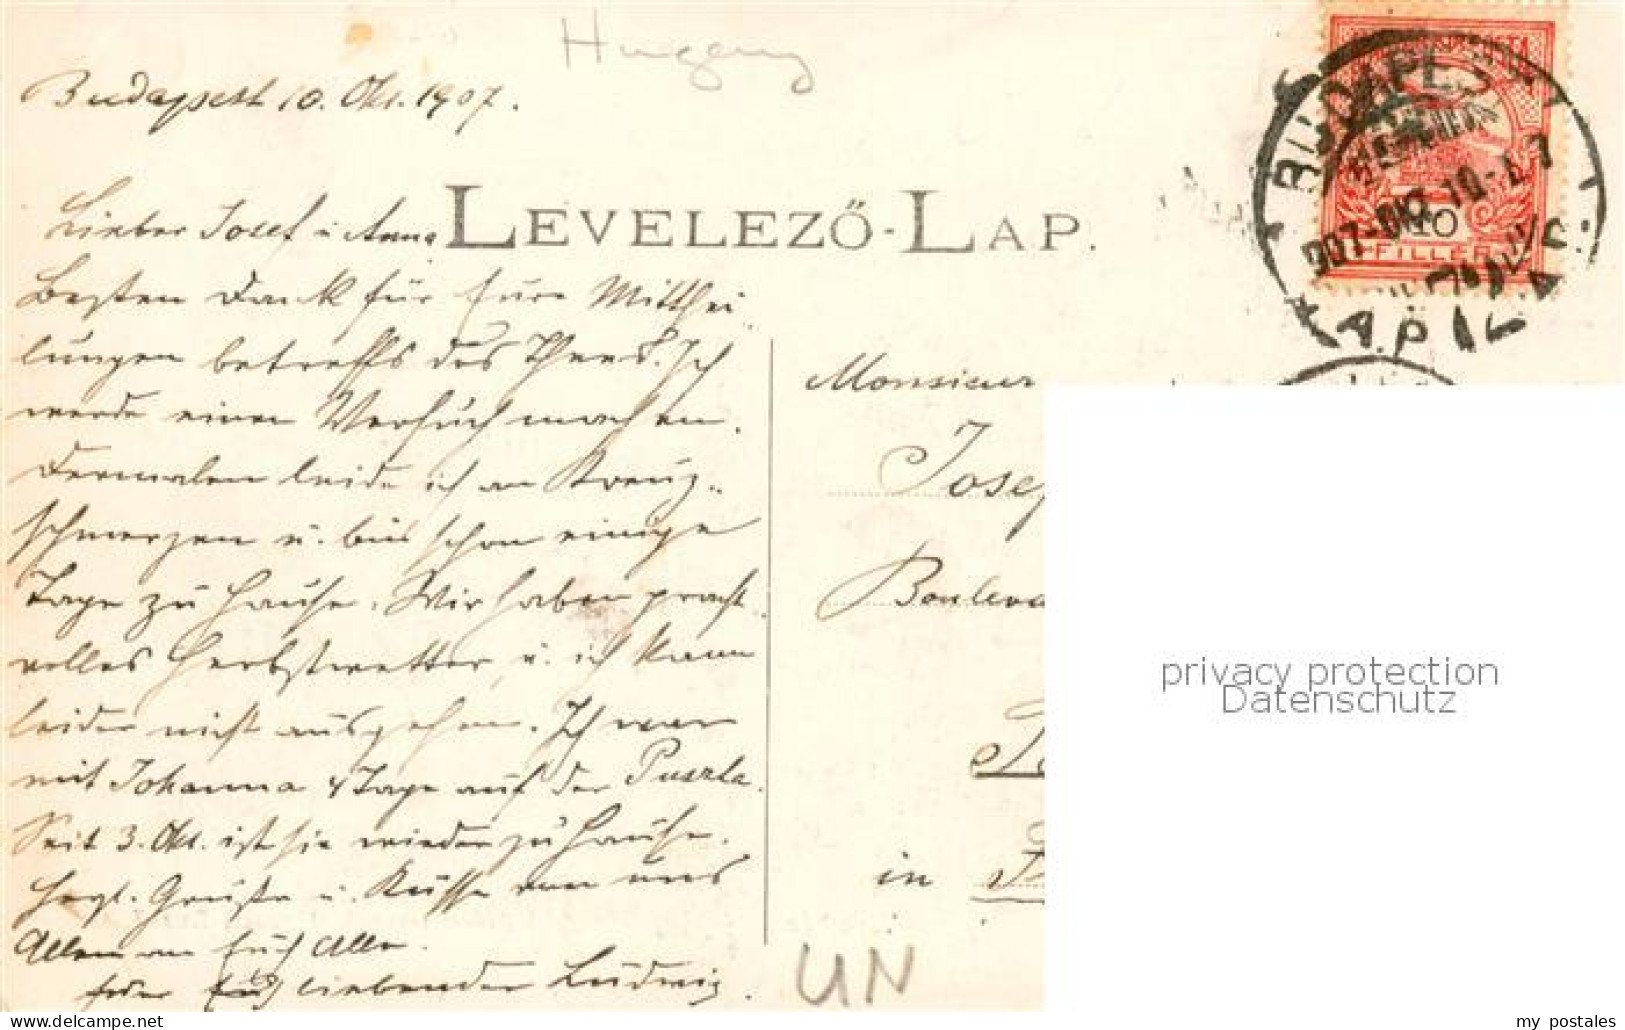 Hungary
Budapest 10. Okt. 1907.
LEVELEZŐ-LAP.
Lieber Josef u. Anna
Besten Dank für Eure Mitthei-
lungen betreffs des Thees. Ich
werde einen Versuch machen.
Dermalen leide ich an Kreuz-
schmerzen u. bin schon einige
Tage zu Hause. Wir haben pracht-
volles Herbstwetter u. ich kann
leider nicht ausgehen. Ich war
mit Johanna 4 Tage auf der Puszta.
Seit 3. Okt. ist sie wieder zu Hause.
Herzl. Grüße u. Küsse von uns
Allen an Euch Alle.
Euer Euch liebender Ludwig.
BUDAPEST
907 OKT 10
10
FILLER
Monsieur
Josef
Bouleva
in
UN
privacy protection
Datenschutz
my_postales